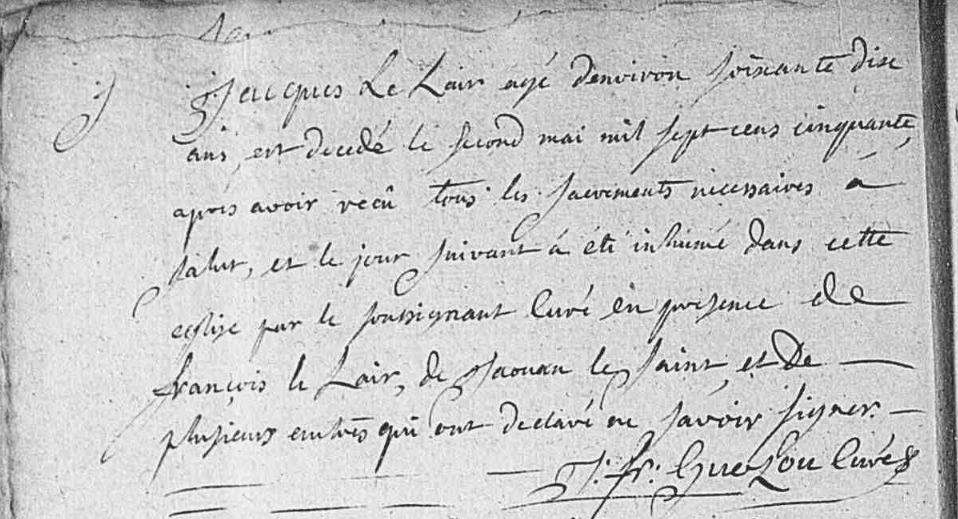 Jacques Le Lair agé denviron soixante dise
ans, est decedé le second mai mil sept cens cinquante,
aprés avoir reçû tous les sacrements necessaires á
salut, et le jour suivant á été inhumé dans cette
eglise par le soussignant Curé en presence de
françois le Lair, de le Saint, et de
plusieurs autres qui ont declaré ne savoir signer. —
J: fr: Guezou Curé